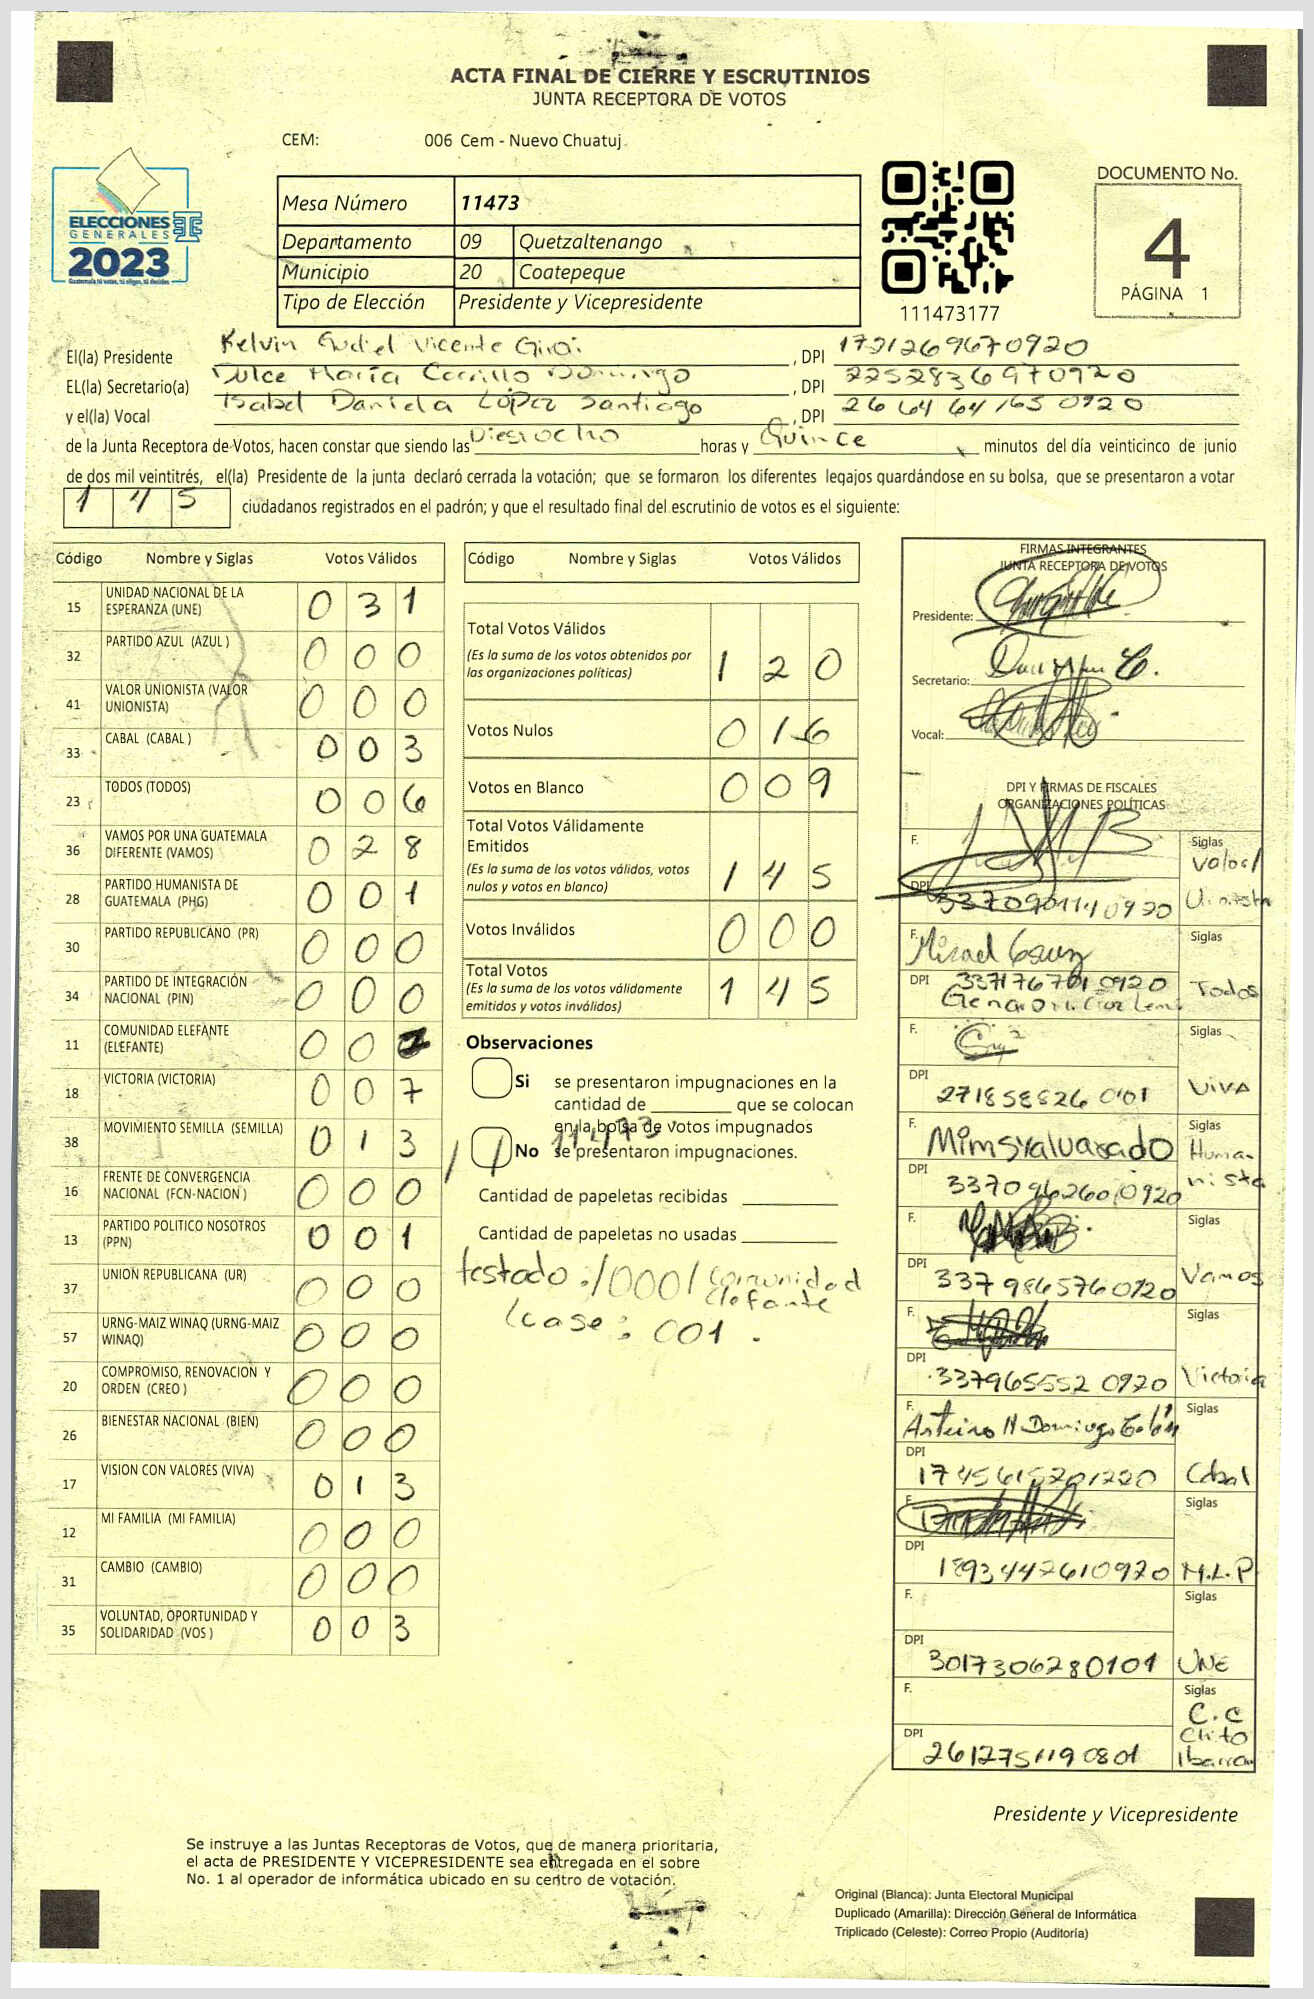 ACTA FINAL DE CIERRE Y ESCRUTINIOS
JUNTA RECEPTORA DE VOTOS
CEM: 006 Cem - Nuevo Chuatuj
ELECCIONES
GENERALES
2023
Guatemala tú votas, tú eliges, tú decides
Mesa Número 11473
Departamento 09 Quetzaltenango
Municipio 20 Coatepeque
Tipo de Elección Presidente y Vicepresidente
111473177
DOCUMENTO No.
4
PÁGINA 1
El(la) Presidente Kelvin Gudiel Vicente , DPI
EL(la) Secretario(a) Dulce María Carrillo Domingo , DPI 2252836970920
y el(la) Vocal Isabel Daniela López Santiago , DPI 2664641650920
de la Junta Receptora de Votos, hacen constar que siendo las Diesiocho horas y Quince minutos del día veinticinco de junio
de dos mil veintitrés, el(la) Presidente de la junta declaró cerrada la votación; que se formaron los diferentes legajos guardándose en su bolsa, que se presentaron a votar
145 ciudadanos registrados en el padrón; y que el resultado final del escrutinio de votos es el siguiente:
Código Nombre y Siglas Votos Válidos
15 UNIDAD NACIONAL DE LA ESPERANZA (UNE) 031
32 PARTIDO AZUL (AZUL ) 000
41 VALOR UNIONISTA (VALOR UNIONISTA) 000
33 CABAL (CABAL ) 003
23 TODOS (TODOS) 006
36 VAMOS POR UNA GUATEMALA DIFERENTE (VAMOS) 028
28 PARTIDO HUMANISTA DE GUATEMALA (PHG) 001
30 PARTIDO REPUBLICANO (PR) 000
34 PARTIDO DE INTEGRACIÓN NACIONAL (PIN) 000
11 COMUNIDAD ELEFANTE (ELEFANTE) 00
18 VICTORIA (VICTORIA) 007
38 MOVIMIENTO SEMILLA (SEMILLA) 013
16 FRENTE DE CONVERGENCIA NACIONAL (FCN-NACION ) 000
13 PARTIDO POLITICO NOSOTROS (PPN) 001
37 UNION REPUBLICANA (UR) 000
57 URNG-MAIZ WINAQ (URNG-MAIZ WINAQ) 000
20 COMPROMISO, RENOVACION Y ORDEN (CREO ) 000
26 BIENESTAR NACIONAL (BIEN) 000
17 VISION CON VALORES (VIVA) 013
12 MI FAMILIA (MI FAMILIA) 000
31 CAMBIO (CAMBIO) 000
35 VOLUNTAD, OPORTUNIDAD Y SOLIDARIDAD (VOS ) 003
Código Nombre y Siglas Votos Válidos
Total Votos Válidos 120
(Es la suma de los votos obtenidos por
las organizaciones politicas)
Votos Nulos 016
Votos en Blanco 009
Total Votos Válidamente
Emitidos 145
(Es la suma de los votos válidos, votos
nulos y votos en blanco)
Votos Inválidos 000
Total Votos 145
(Es la suma de los votos válidamente
emitidos y votos inválidos)
Observaciones
Si se presentaron impugnaciones en la
cantidad de que se colocan
en la bolsa de votos impugnados
11473
No se presentaron impugnaciones.
Cantidad de papeletas recibidas
Cantidad de papeletas no usadas
testado:/000/ comunidad
elefante
léase: 001.
FIRMAS INTEGRANTES
JUNTA RECEPTORA DE VOTOS
Presidente:
Secretario:
Vocal:
DPI Y FIRMAS DE FISCALES
ORGANIZACIONES POLÍTICAS
F. Siglas Valor/
DPI 3370901140920 Unionista
F. Siglas
DPI 3371767010920 Todos
F. Siglas
DPI 2718588260101 VIVA
F. Mimsy alvarado Siglas Huma-
DPI 3370962600920 nista
F. Siglas
DPI 3379865760920 Vamos
F. Siglas
DPI 3379655520920 Victoria
F. Arturo N Domingo Siglas
DPI 1745615201220 Cabal
F. Siglas
DPI 1893442610920 M.L.P
F. Siglas
DPI 3017306280101 UNE
F. Siglas C.C
DPI 2612751190801 Chito
Ibarra
Presidente y Vicepresidente
Se instruye a las Juntas Receptoras de Votos, que de manera prioritaria,
el acta de PRESIDENTE Y VICEPRESIDENTE sea entregada en el sobre
No. 1 al operador de informática ubicado en su centro de votación.
Original (Blanca): Junta Electoral Municipal
Duplicado (Amarilla): Dirección General de Informática
Triplicado (Celeste): Correo Propio (Auditoría)